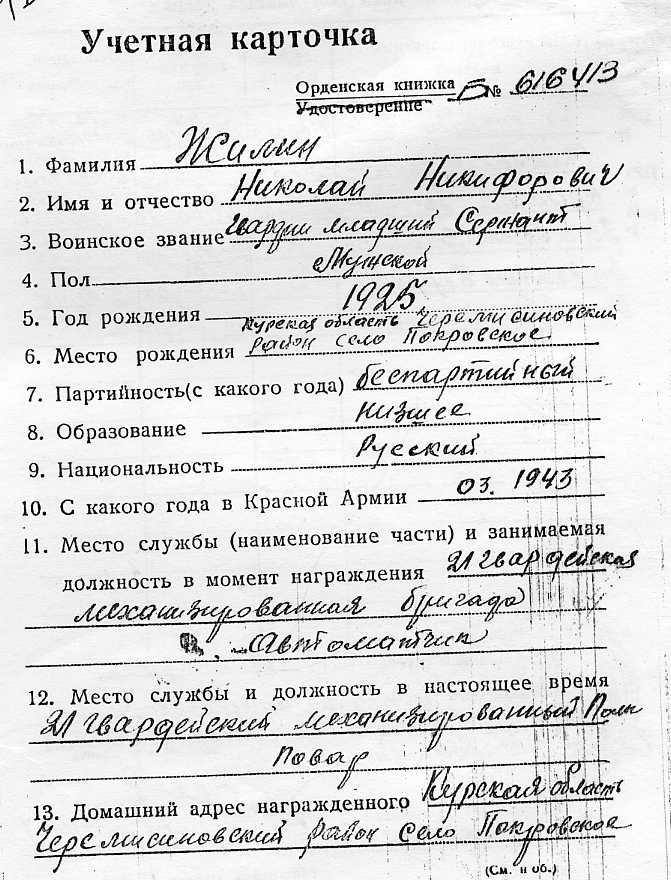 Учетная карточка
Орденская книжка Б № 616413
Удостоверение
1. Фамилия Жилин
2. Имя и отчество Николай Никифорович
3. Воинское звание гвардии младший Сержант
4. Пол Мужской
5. Год рождения 1925
Курская область Черемисиновский
6. Место рождения район село Покровское
7. Партийность(с какого года) беспартийный
8. Образование низшее
9. Национальность Русский
10. С какого года в Красной Армии 03. 1943
11. Место службы (наименование части) и занимаемая
должность в момент награждения 21 гвардейская
механизированная бригада
Автоматчик
12. Место службы и должность в настоящее время
21 гвардейский механизированный Полк
Повар
13. Домашний адрес награжденного Курская область
Черемисиновский район село Покровское
(См. н об.)